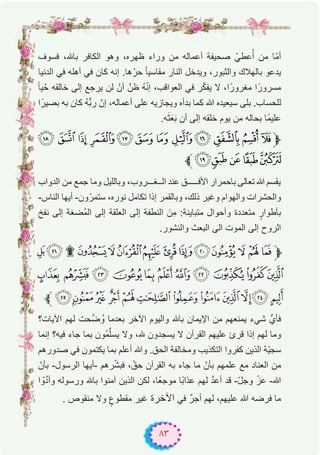 أمّا من أُعطِيَ صحيفة أعماله من وراء ظهره، وهو الكافر بالله، فسوف
يدعو بالهلاك والثبور، ويدخل النار مقاسياً حرّها. إنه كان في أهله في الدنيا
مسرورًا مغرورًا، لا يفكّر في العواقب، إنّهُ ظنَّ أنْ لن يرجع إلى خالقه حيّاً
للحساب. بلى سيعيده الله كما بدأه ويجازيه على أعماله، إنّ ربَّهُ كان به بصيرًا
عليمًا بحاله من يوم خلقه إلى أن بَعَثَه.
﴿ فَلَآ أُقْسِمُ بِٱلشَّفَقِ ﴿١٦﴾ وَٱلَّيْلِ وَمَا وَسَقَ ﴿١٧﴾ وَٱلْقَمَرِ إِذَا ٱتَّسَقَ ﴿١٨﴾
لَتَرْكَبُنَّ طَبَقًا عَن طَبَقٍ ﴿١٩﴾ ﴾
يقسم الله تعالى باحمرار الأفــــق عند الغـــروب، وبالليل وما جمع من الدواب
والحشرات والهوام وغير ذلك، وبالقمر إذا تكامل نوره، ستمرّون- أيها الناس-
بأطوارٍ متعددة وأحوال متباينة: من النطفة إلى العلقة إلى المُضغة إلى نفخ
الروح إلى الموت الى البعث والنشور.
﴿ فَمَا لَهُمْ لَا يُؤْمِنُونَ ﴿٢٠﴾ وَإِذَا قُرِئَ عَلَيْهِمُ ٱلْقُرْءَانُ لَا يَسْجُدُونَ ۩ ﴿٢١﴾ بَلِ
ٱلَّذِينَ كَفَرُوا۟ يُكَذِّبُونَ ﴿٢٢﴾ وَٱللَّهُ أَعْلَمُ بِمَا يُوعُونَ ﴿٢٣﴾ فَبَشِّرْهُم بِعَذَابٍ
أَلِيمٍ ﴿٢٤﴾ إِلَّا ٱلَّذِينَ ءَامَنُوا۟ وَعَمِلُوا۟ ٱلصَّٰلِحَٰتِ لَهُمْ أَجْرٌ غَيْرُ مَمْنُونٍۭ ﴿٢٥﴾ ﴾
فأيُّ شيء يمنعهم من الإيمان بالله واليوم الآخر بعدما وُضّحت لهم الآيات؟
وما لهم إذا قرئ عليهم القرآن لا يسجدون لله، ولا يسلّمون بما جاء فيه؟ إنما
سجيّة الذين كفروا التكذيب ومخالفة الحق. والله أعلم بما يكتمون في صدورهم
من العناد مع علمهم بأنّ ما جاء به القرآن حقّ، فبشّرهم -أيها الرسول- بأنّ
الله- عزّ وجلّ- قد أعدَّ لهم عذابًا موجعًا، لكن الذين آمنوا بالله ورسوله وأدَّوْا
ما فرضه الله عليهم، لهم أجرٌ في الآخرة غير مقطوع ولا منقوص .
٨٣